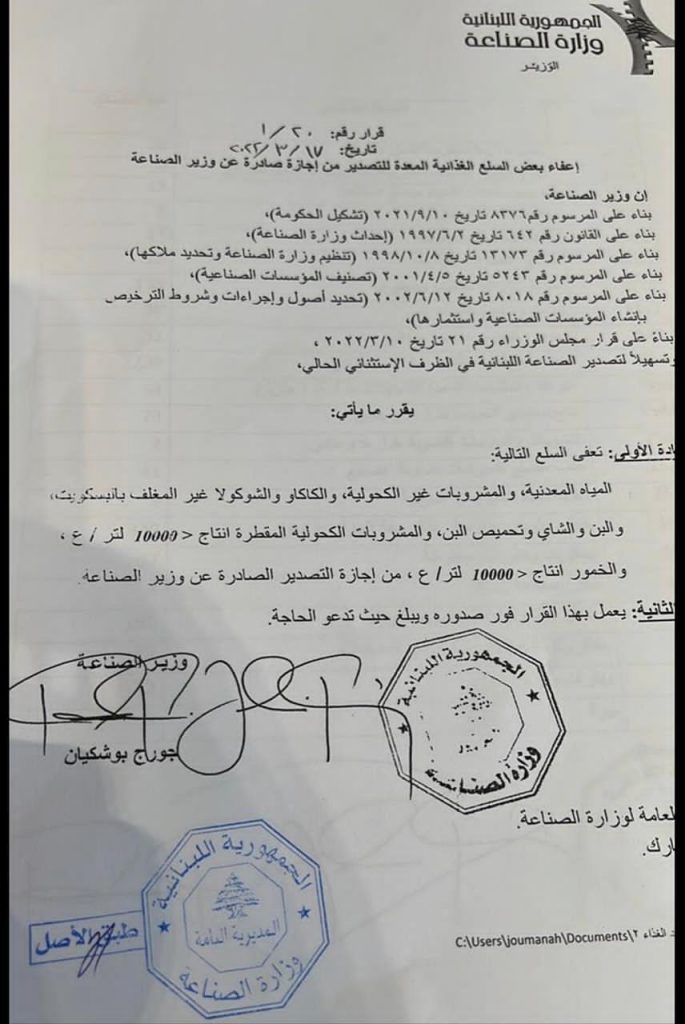 الجمهورية اللبنانية
وزارة الصناعة
الوزيـر
قرار رقم: ١/٢٠
تاريخ: ٢٠٢٢/٣/١٧
إعفاء بعض السلع الغذائية المعدة للتصدير من إجازة صادرة عن وزير الصناعة
إن وزير الصناعة،
بناء على المرسوم رقم ٨٣٧٦ تاريخ ٢٠٢١/٩/١٠ (تشكيل الحكومة)،
بناء على القانون رقم ٦٤٢ تاريخ ١٩٩٧/٦/٢ (إحداث وزارة الصناعة)،
بناء على المرسوم رقم ١٣١٧٣ تاريخ ١٩٩٨/١٠/٨ (تنظيم وزارة الصناعة وتحديد ملاكها)،
بناء على المرسوم رقم ٥٢٤٣ تاريخ ٢٠٠١/٤/٥ (تصنيف المؤسسات الصناعية)،
بناء على المرسوم رقم ٨٠١٨ تاريخ ٢٠٠٢/٦/١٢ (تحديد أصول وإجراءات وشروط الترخيص
بإنشاء المؤسسات الصناعية واستثمارها)،
بناءً على قرار مجلس الوزراء رقم ٢١ تاريخ ٢٠٢٢/٣/١٠ ،
وتسهيلاً لتصدير الصناعة اللبنانية في الظرف الإستثنائي الحالي،
يقرر ما يأتي:
ادة الأولى: تعفى السلع التالية:
المياه المعدنية، والمشروبات غير الكحولية، والكاكاو والشوكولا غير المغلف بالبسكويت،
والبن والشاي وتحميص البن، والمشروبات الكحولية المقطرة انتاج < 10000 لتر / ع ،
والخمور انتاج < 10000 لتر/ ع ، من إجازة التصدير الصادرة عن وزير الصناعة.
الثانية: يعمل بهذا القرار فور صدوره ويبلغ حيث تدعو الحاجة.
وزير الصناعة
جورج بوشكيان
الجمهورية اللبنانية
وزارة الصناعة
لعامة لوزارة الصناعة.
ارك.
الجمهورية اللبنانية
المديرية العامة
وزارة الصناعة
طبق الأصل
C:\Users\joumanah\Documents\٢ الغذاء